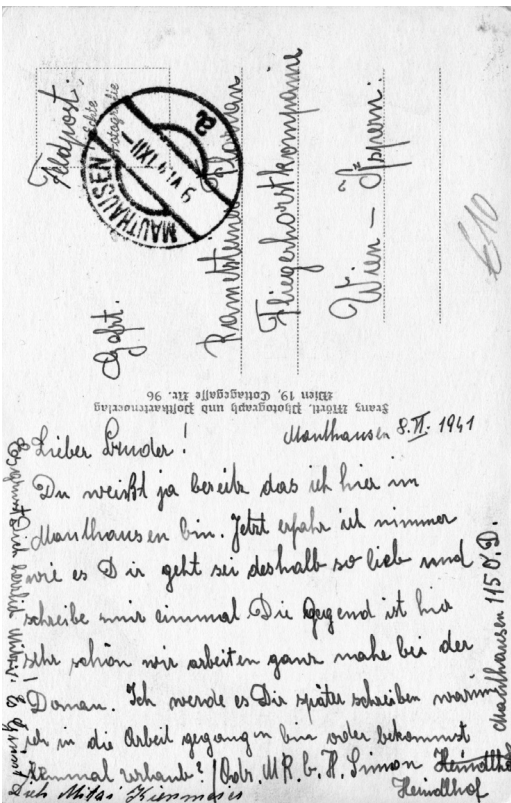 Feldpost!
Echte
Photographie
MAUTHAUSEN
9.VI.41.XII
a
Gefrt.
Florian
Fliegerhorstkompanie
Wien – Aspern.
£10
Franz Mörtl, Photograph und Postkartenverlag
Wien 19, Cottagegasse Nr. 96
Mauthausen 8.VI. 1941
Lieber Bruder!
Du weißt ja bereits das ich hier in
Mauthausen bin. Jetzt erfahr ich nimmer
wie es Dir geht sei deshalb so lieb und
schreibe mir einmal Die Gegend ist hier
sehr schön wir arbeiten ganz nahe bei der
Donau. Ich werde es Dir später schreiben warum
ich in die Arbeit gegangen bin oder bekommst
einmal urlaub? Adr. M.R. b. H. Simon
Heindlhof
Mauthausen 115 O.D.
Es grüßt Dich herzlich
Es grüßt
Dich